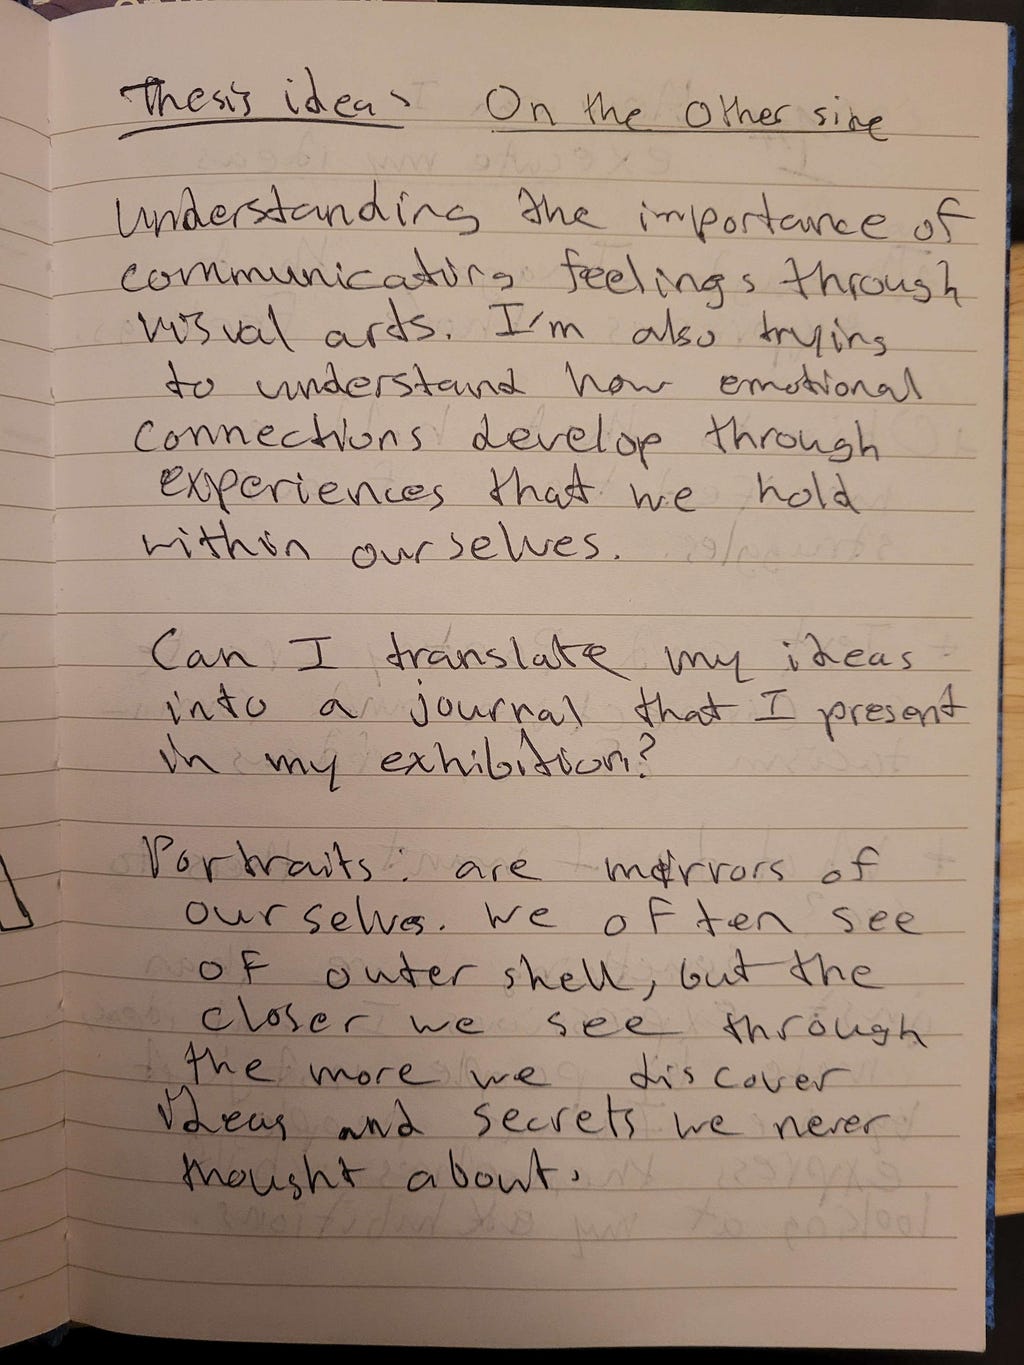 Thesis ideas On the Other side
Understanding the importance of
communicating feelings through
visual arts. I'm also trying
to understand how emotional
connections develop through
experiences that we hold
within ourselves.
Can I translate my ideas
into a journal that I present
in my exhibition?
Portraits: are mirrors of
ourselves. We often see
of outer shell, but the
closer we see through
the more we discover
ideas and secrets we never
thought about.